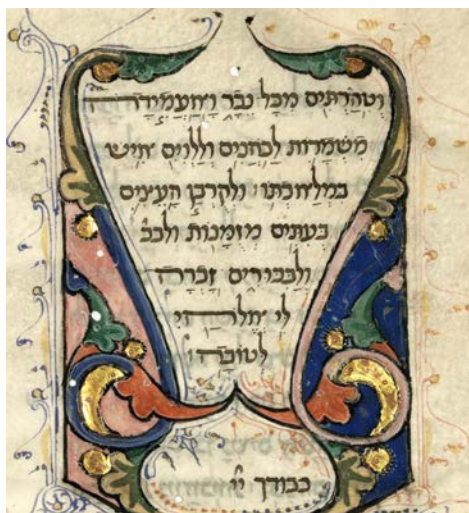 וטהרתים מכל נכר ואעמידה
משמרות לכהנים וללוים איש
במלאכתו ולקרבן העצים
בעתים מזמנות ולבכ
ולבכורים זכרה
לי אלהי
לטובה
כבודך יי